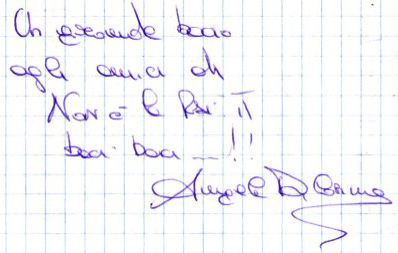 Un grande bacio
agli amici di
Non è la Rai II
baci baci ...!!
Angela Di Cosimo